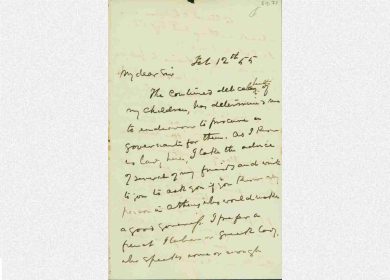 Feb 12th 55
My dear Sir
The combined delicacy of
my children, has determined me
to endeavour to procure a
governante for them. As I know
no lady here, I take the advice
of several of my friends and write
to you to ask you if you know any
person in Athens who would make
a good governess. I prefer a
french Italian or Greek lady,
who speaks some or enough